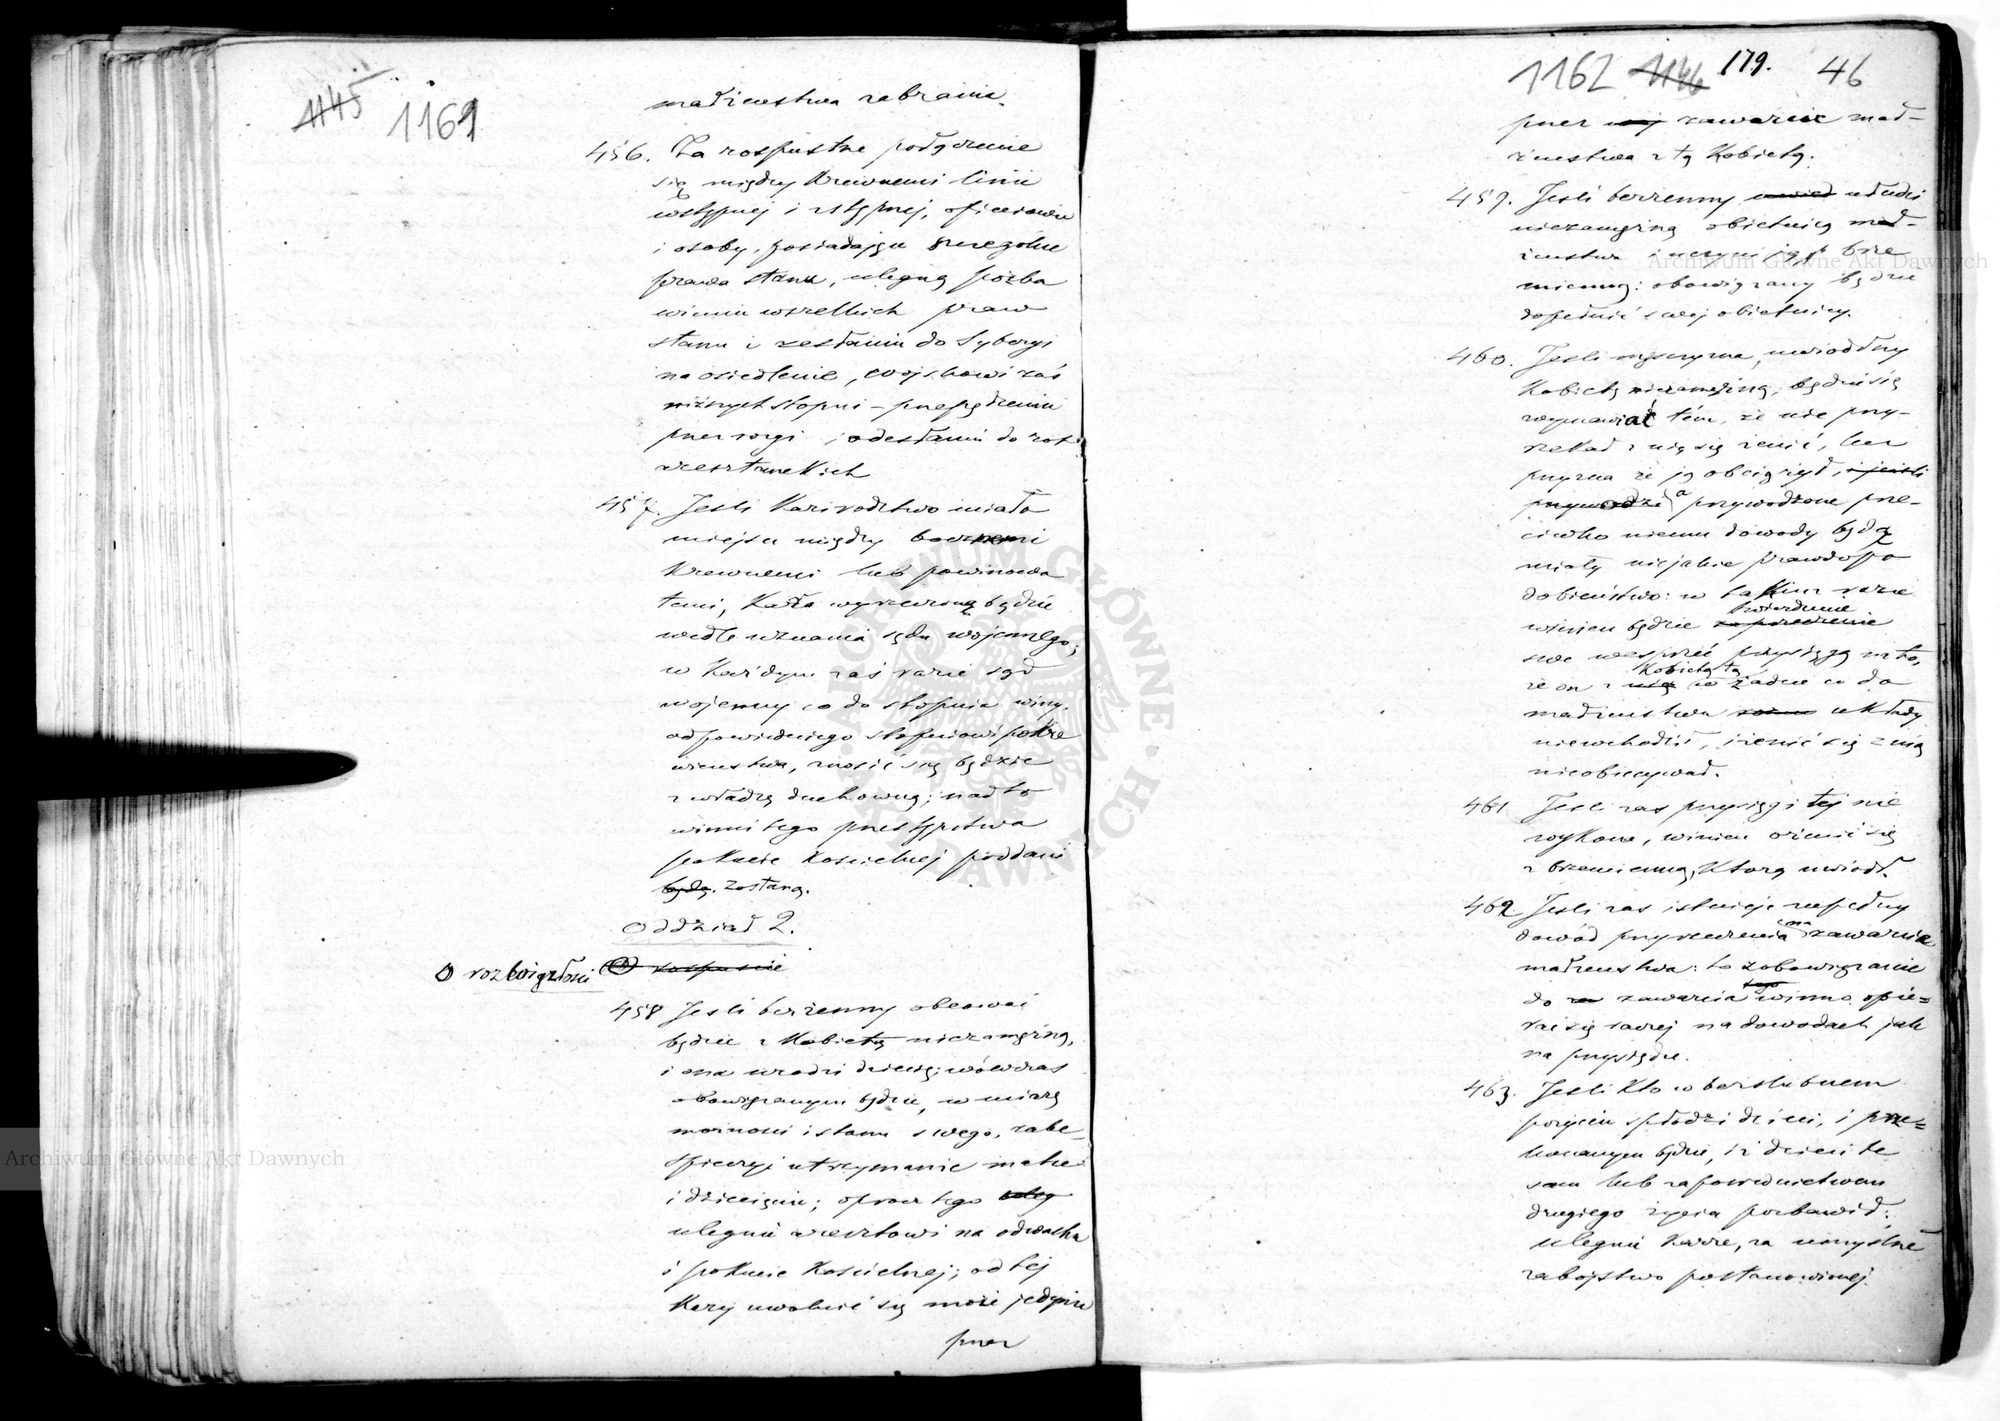 1145
1161
małżeństwa zabrania.
456. Za rozpustne połączenie
się między Krewnemi linii
wstępnej i zstępnej, oficerowie
i osoby, posiadające szczególne
prawa stanu, ulegną pozba
wieniu wszelkich praw
stanu i zesłaniu do Syberyi
na osiedlenie, wojskowi zaś
niższych stopni – przepędzeniu
przez rózgi i odesłaniu do rot
aresztanckich
457. Jeśli Kazirodztwo miało
miejsce między bocznemi
Krewnemi lub powinowa
temi, Kara wyrzeczoną będzie
wedle uznania sądu wojennego;
w Każdym zaś razie sąd
wojenny co do stopnia winy,
odpowiedniego stopniowi pokre
wieństwa, znosić się będzie
z władzą duchowną; nadto
winni tego przestępstwa
pokucie Kościelnej poddani
będą. zostaną.
Oddział 2.
O rozwiązłości
O rozpuście
458 Jeśli bezżenny obcować
będzie z Kobietą niezamężną,
i ona urodzi dziecię; wówczas
obowiązanym będzie, w miarę
możności i stanu swego, zabe-
śpieczyć utrzymanie matce
i dziecięciu; oprócz tego uleg
ulegnie aresztowi na odwachu
i pokucie Kościelnej; od tej
Kary uwolnić się może jedynie
przez
1162 1146 179. 46
przez zawarcie mał-
żeństwa z tą Kobietą.
459. Jeśli bezżenny uwiód ułudzi
niezamężną obietnicą mał-
żeństwa i uczyni ją brze
mienną: obowiązany będzie
dopełnić swej obietnicy.
460. Jeśli mężczyzna, uwiodłszy
Kobietę niezamężną, będzie się
wymawiać tém, że nie przy-
rzekał z nią się żenić, lecz
przyzna że ją obciążył, i jeśli
przywodzi a przywodzone prze-
ciwko niemu dowody będą
miały niejakie prawdopo
dobieństwo: w takim razie
twierdzenie
winien będzie zaprzeczenie
swe wesprzéć przysięgą na to,
Kobietą tą
że on z nią w żadne co do
małżeństwa układy
niewchodził, i żenić się z nią
nieobiecywał.
461 Jeśli zaś przysięgi tej nie
wykona, winien ożenić się
z brzemienną, Którą uwiódł.
462. Jeśli zaś istnieje zupełny
na
dowód przyrzeczenia zawarcia
małżeństwa: to zobowiązanie
tego
do zawarcia winno opie-
rać się raczej na dowodach jak
na przysiędze.
463. Jeśli Kto w bezślubném
pożyciu spłodzi dzieci, i prze-
konanym będzie, iż dzieci te
sam lub za pośrednictwem
drugiego życia pozbawił;
ulegnie Karze, za umyślne
zabójstwo postanowionej.
Archiwum Główne Akt Dawnych
Archiwum Główne Akt Dawnych
ARCHIWUM GŁÓWNE AKT DAWNYCH